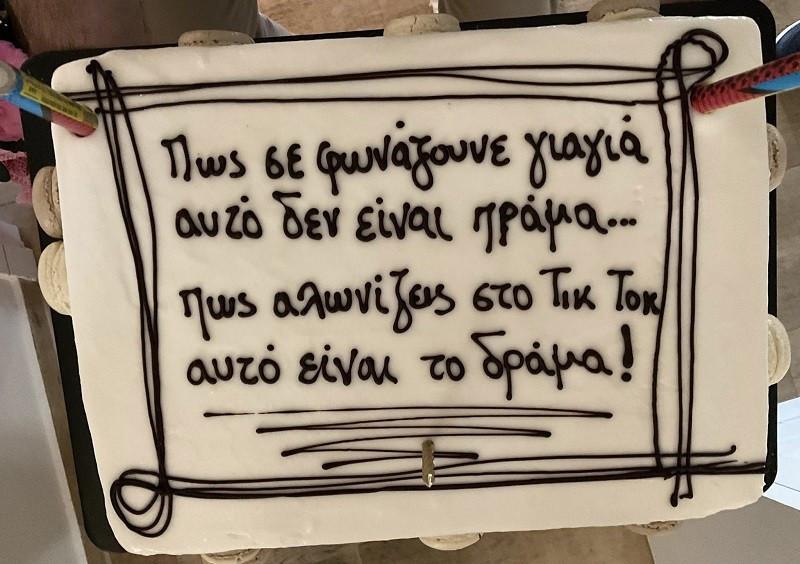 Πως σε φωνάζουνε γιαγιά
αυτό δεν είναι πράμα...
πως αλωνίζεις στο Τικ Τοκ
αυτό είναι το δράμα!